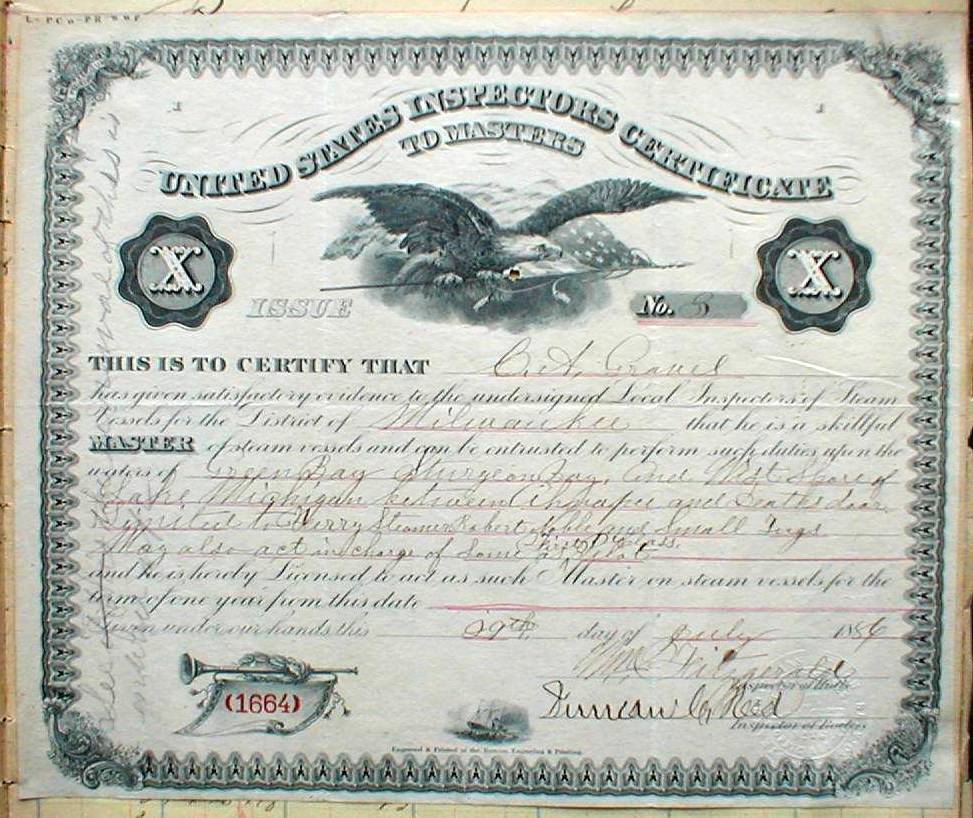 UNITED STATES INSPECTORS CERTIFICATE
TO MASTERS
X
X
ISSUE
No. 5
THIS IS TO CERTIFY THAT C. A. Gravel
has given satisfactory evidence to the undersigned Local Inspectors of Steam
Vessels for the District of Milwaukee that he is a skillful
MASTER of steam vessels and can be entrusted to perform such duties upon the
waters of Green Bay Sturgeon Bay, and West Shore of
Lake Michigan between Ahnapee and Deaths door.
Limited to Ferry Steamer Robert Noble and Small Tugs
May also act in charge of Same as First Class Pilot
and he is hereby Licensed to act as such Master on steam vessels for the
term of one year from this date
Given under our hands this 29th day of July 1886
Wm Fitzgerald
Inspector of Hulls
(1664)
Duncan C. Reid
Inspector of Boilers
Engraved & Printed at the Bureau, Engraving & Printing.